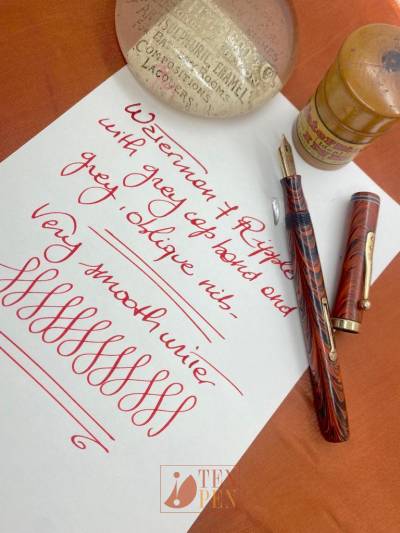 SULPHURIL ENAMEL
BATH ROOMS
COMPOSITIONS
LACQUERS
Waterman 7 Ripple
with grey cap band and
grey, oblique nib.
Very smooth writer
TEN
PEN